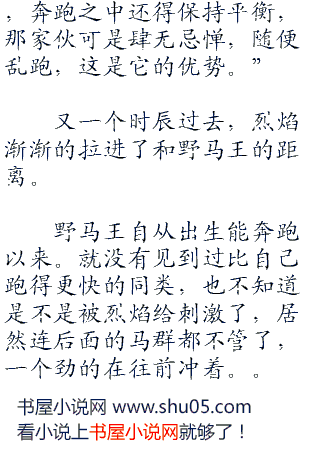 ，奔跑之中还得保持平衡，
那家伙可是肆无忌惮，随便
乱跑，这是它的优势。”
又一个时辰过去，烈焰
渐渐的拉进了和野马王的距
离。
野马王自从出生能奔跑
以来。就没有见到过比自己
跑得更快的同类，也不知道
是不是被烈焰给刺激了，居
然连后面的马群都不管了，
一个劲的在往前冲着。。
书屋小说网 www.shu05.com
看小说上书屋小说网就够了！